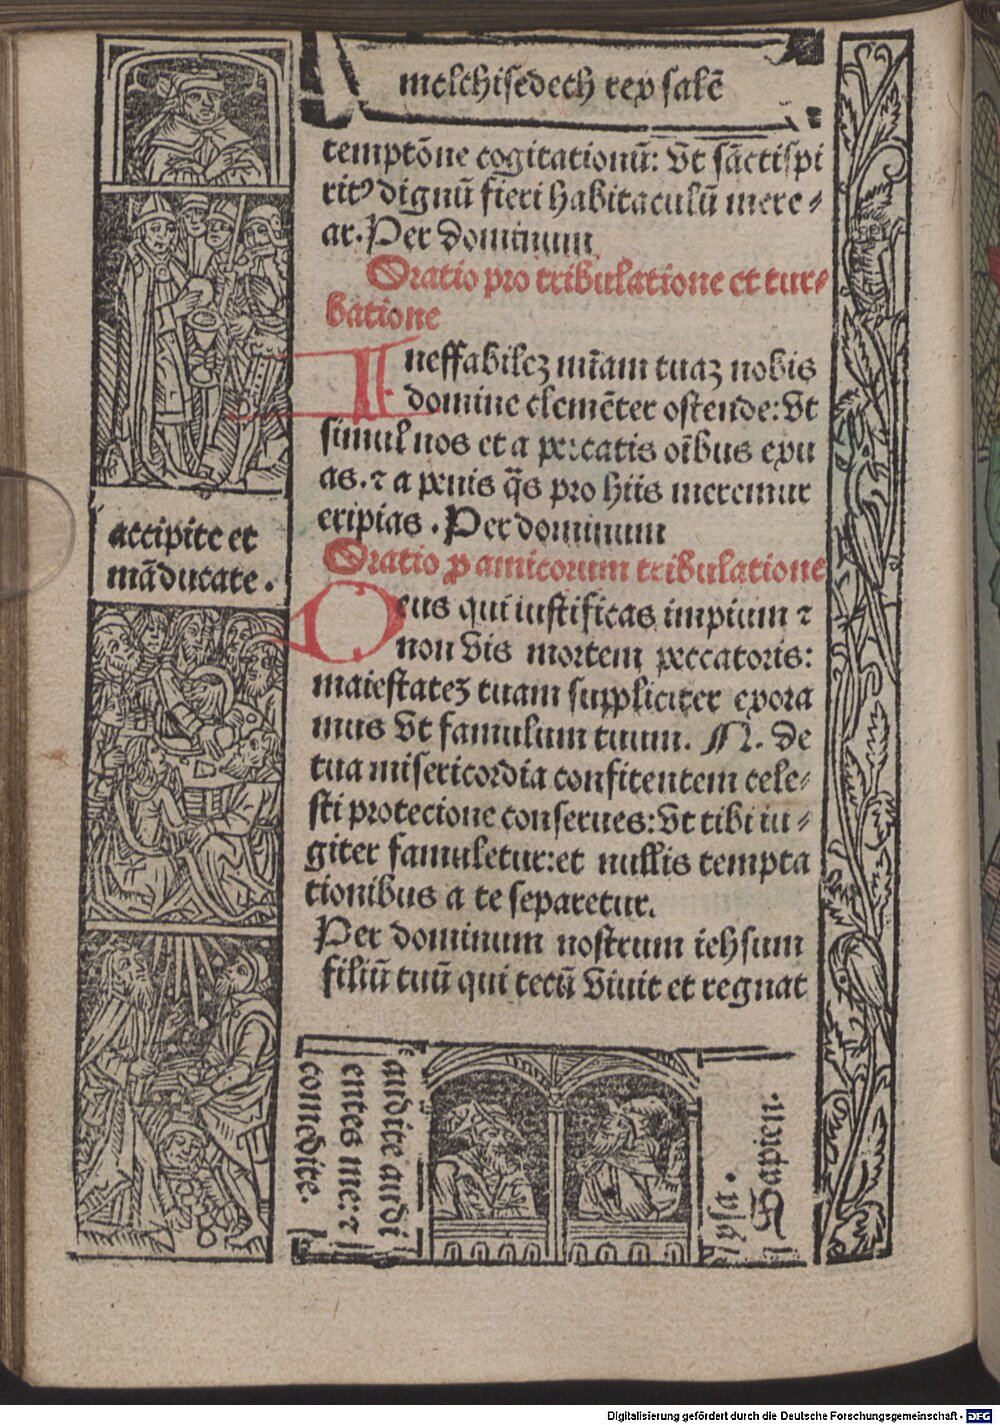 melchisedech rex salē
temptōne cogitationū: Vt sāctispi
ritꝰ dignū fieri habitaculū mere⸗
ar. Per dominum
Oratio pro tribulatione et tur⸗
batione
Ineffabilez mīam tuaz nobis
domine clemēter ostende: Vt
simul nos et a peccatis oībus exu
as. ⁊ a penis q̄s pro hiis meremur
eripias. Per dominum
Oratio ꝓ amicorum tribulatione
Deus qui iustificas impium ⁊
non vis mortem peccatoris:
maiestatez tuam suppliciter exora
mus Vt famulum tuum. N. de
tua misericordia confitentem cele⸗
sti protecione conserues: Vt tibi iu⸗
giter famuletur: et nullis tempta
tionibus a te separetur.
Per dominum nostrum iehsum
filiū tuū qui tecū viuit et regnat
accipite et
māducate.
audite audi
entes me: ⁊
comedite.
Sapien.
Digitalisierung gefördert durch die Deutsche Forschungsgemeinschaft - DFG